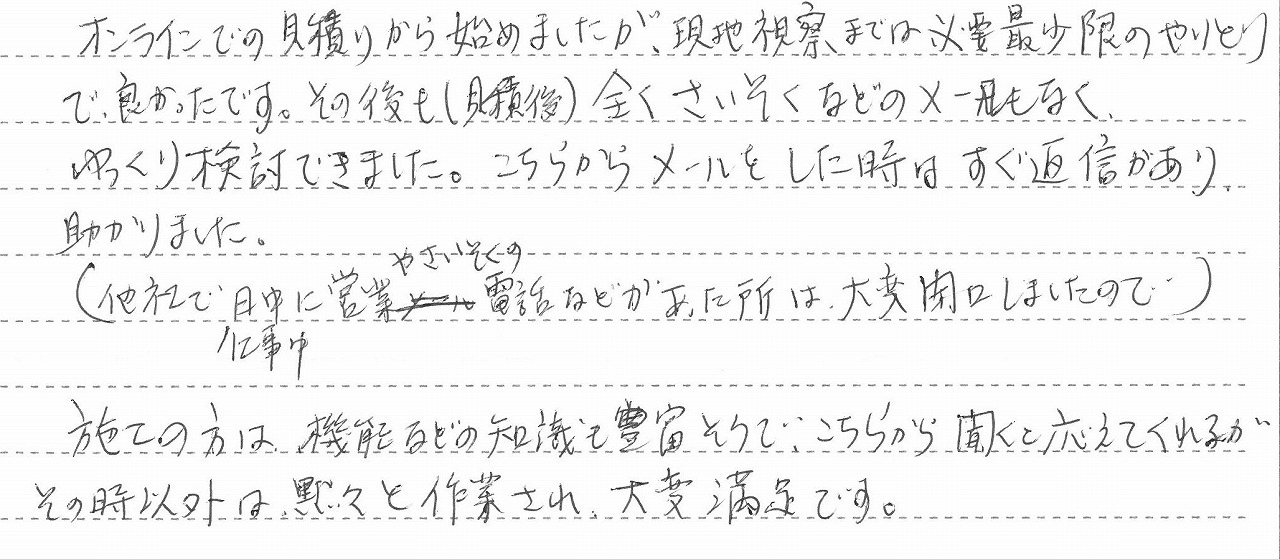 オンラインでの見積りから始めましたが、現地視察までは必要最少限のやりとり
で、良かったです。その後も(見積後)全くさいそくなどのメールもなく、
ゆっくり検討できました。こちらからメールをした時はすぐ返信があり、
助かりました。
やさいそくの
(他社で日中に営業メール電話などがあった所は、大変閉口しましたので…)
仕事中
施工の方は、機能などの知識も豊富そうで、こちらから聞くと応えてくれるが
その時以外は、黙々と作業され、大変満足です。